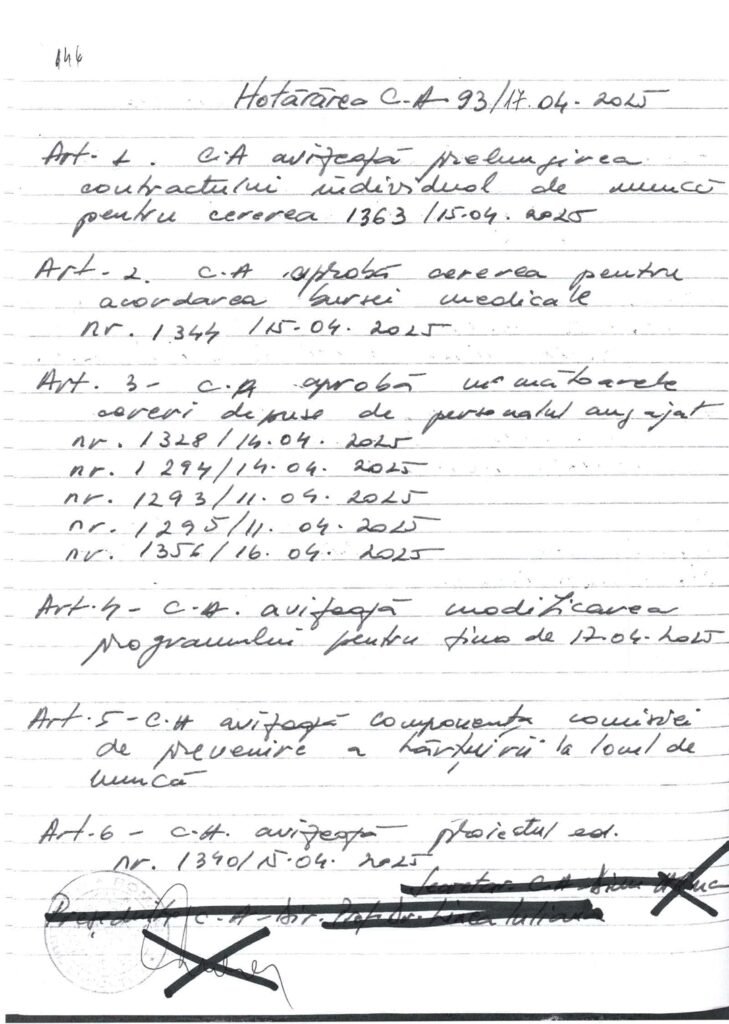 144
Hotărârea C.A 93/17.04.2025
Art. 1. C.A avizează prelungirea
contractului individual de muncă
pentru cererea 1363/15.04.2025
Art. 2. C.A aprobă cererea pentru
acordarea bursei medicale
nr. 1344/15.04.2025
Art. 3 - C.A aprobă următoarele
cereri depuse de personalul angajat
nr. 1328/14.04.2025
nr. 1294/14.04.2025
nr. 1293/11.04.2025
nr. 1295/11.04.2025
nr. 1356/16.04.2025
Art. 4 - C.A. avizează modificarea
programului pentru ziua de 17.04.2025
Art. 5 - C.A avizează componența comisiei
de prevenire a hărțuirii la locul de
muncă
Art. 6 - C.A. avizează proiectul ed.
nr. 1340/15.04.2025
Secretar C.A
Președinte C.A - Dir. Prof. Dr.